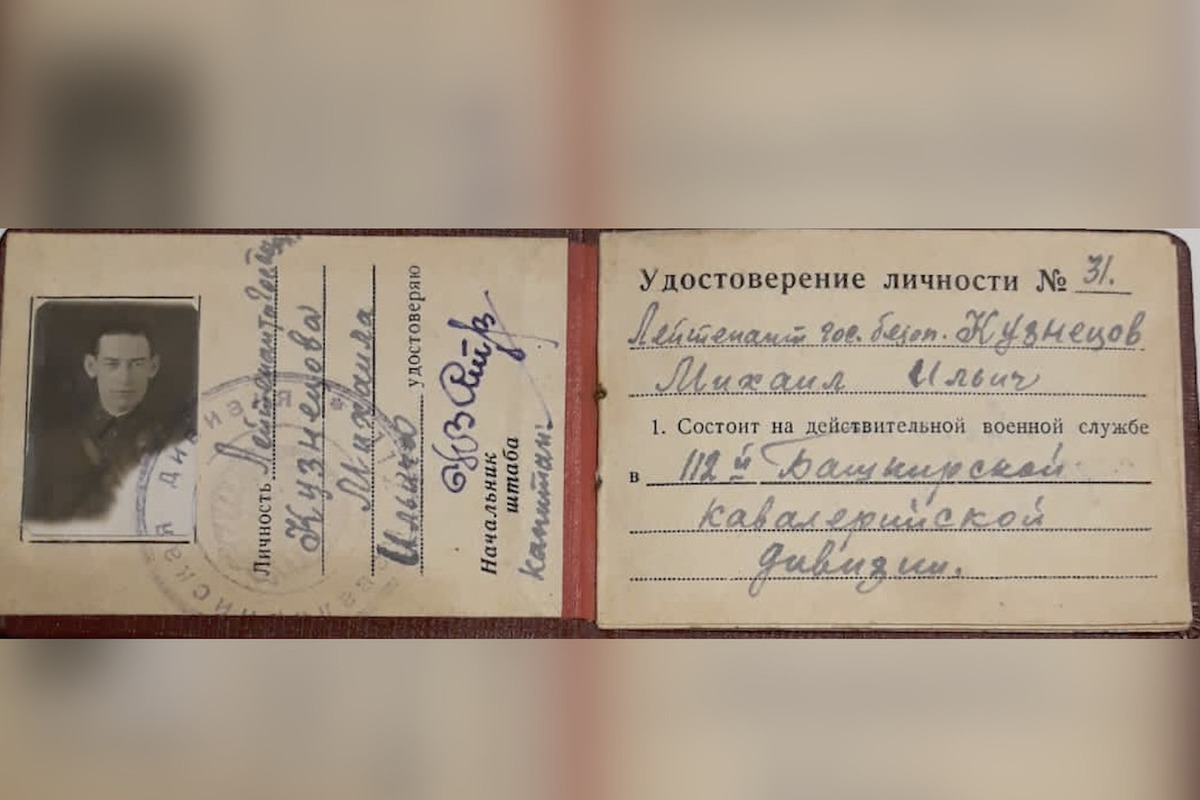 Личность Лейтенанта Госбез
Кузнецова
Михаила
Ильича удостоверяю
Начальник
штаба
капитан
Удостоверение личности № 31.
Лейтенант гос. безоп. Кузнецов
Михаил Ильич
1. Состоит на действительной военной службе
в 112й Башкирской
кавалерийской
дивизии.